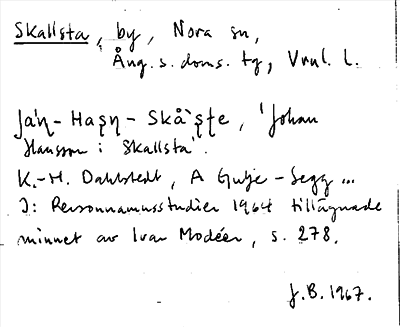 Skallsta, by, Nora sn,
Ång. s. doms. tg, Vnul. l.
Ja`ŋ-Haʂŋ-Skå`ʂʈe, 'Johan
Hansson i Skallsta'.
K.-H. Dahlstedt, A Gutje-Segg...
I: Personnamnsstudier 1964 tillägnade
minnet av Ivar Modéer, s. 278.
J.B. 1967.